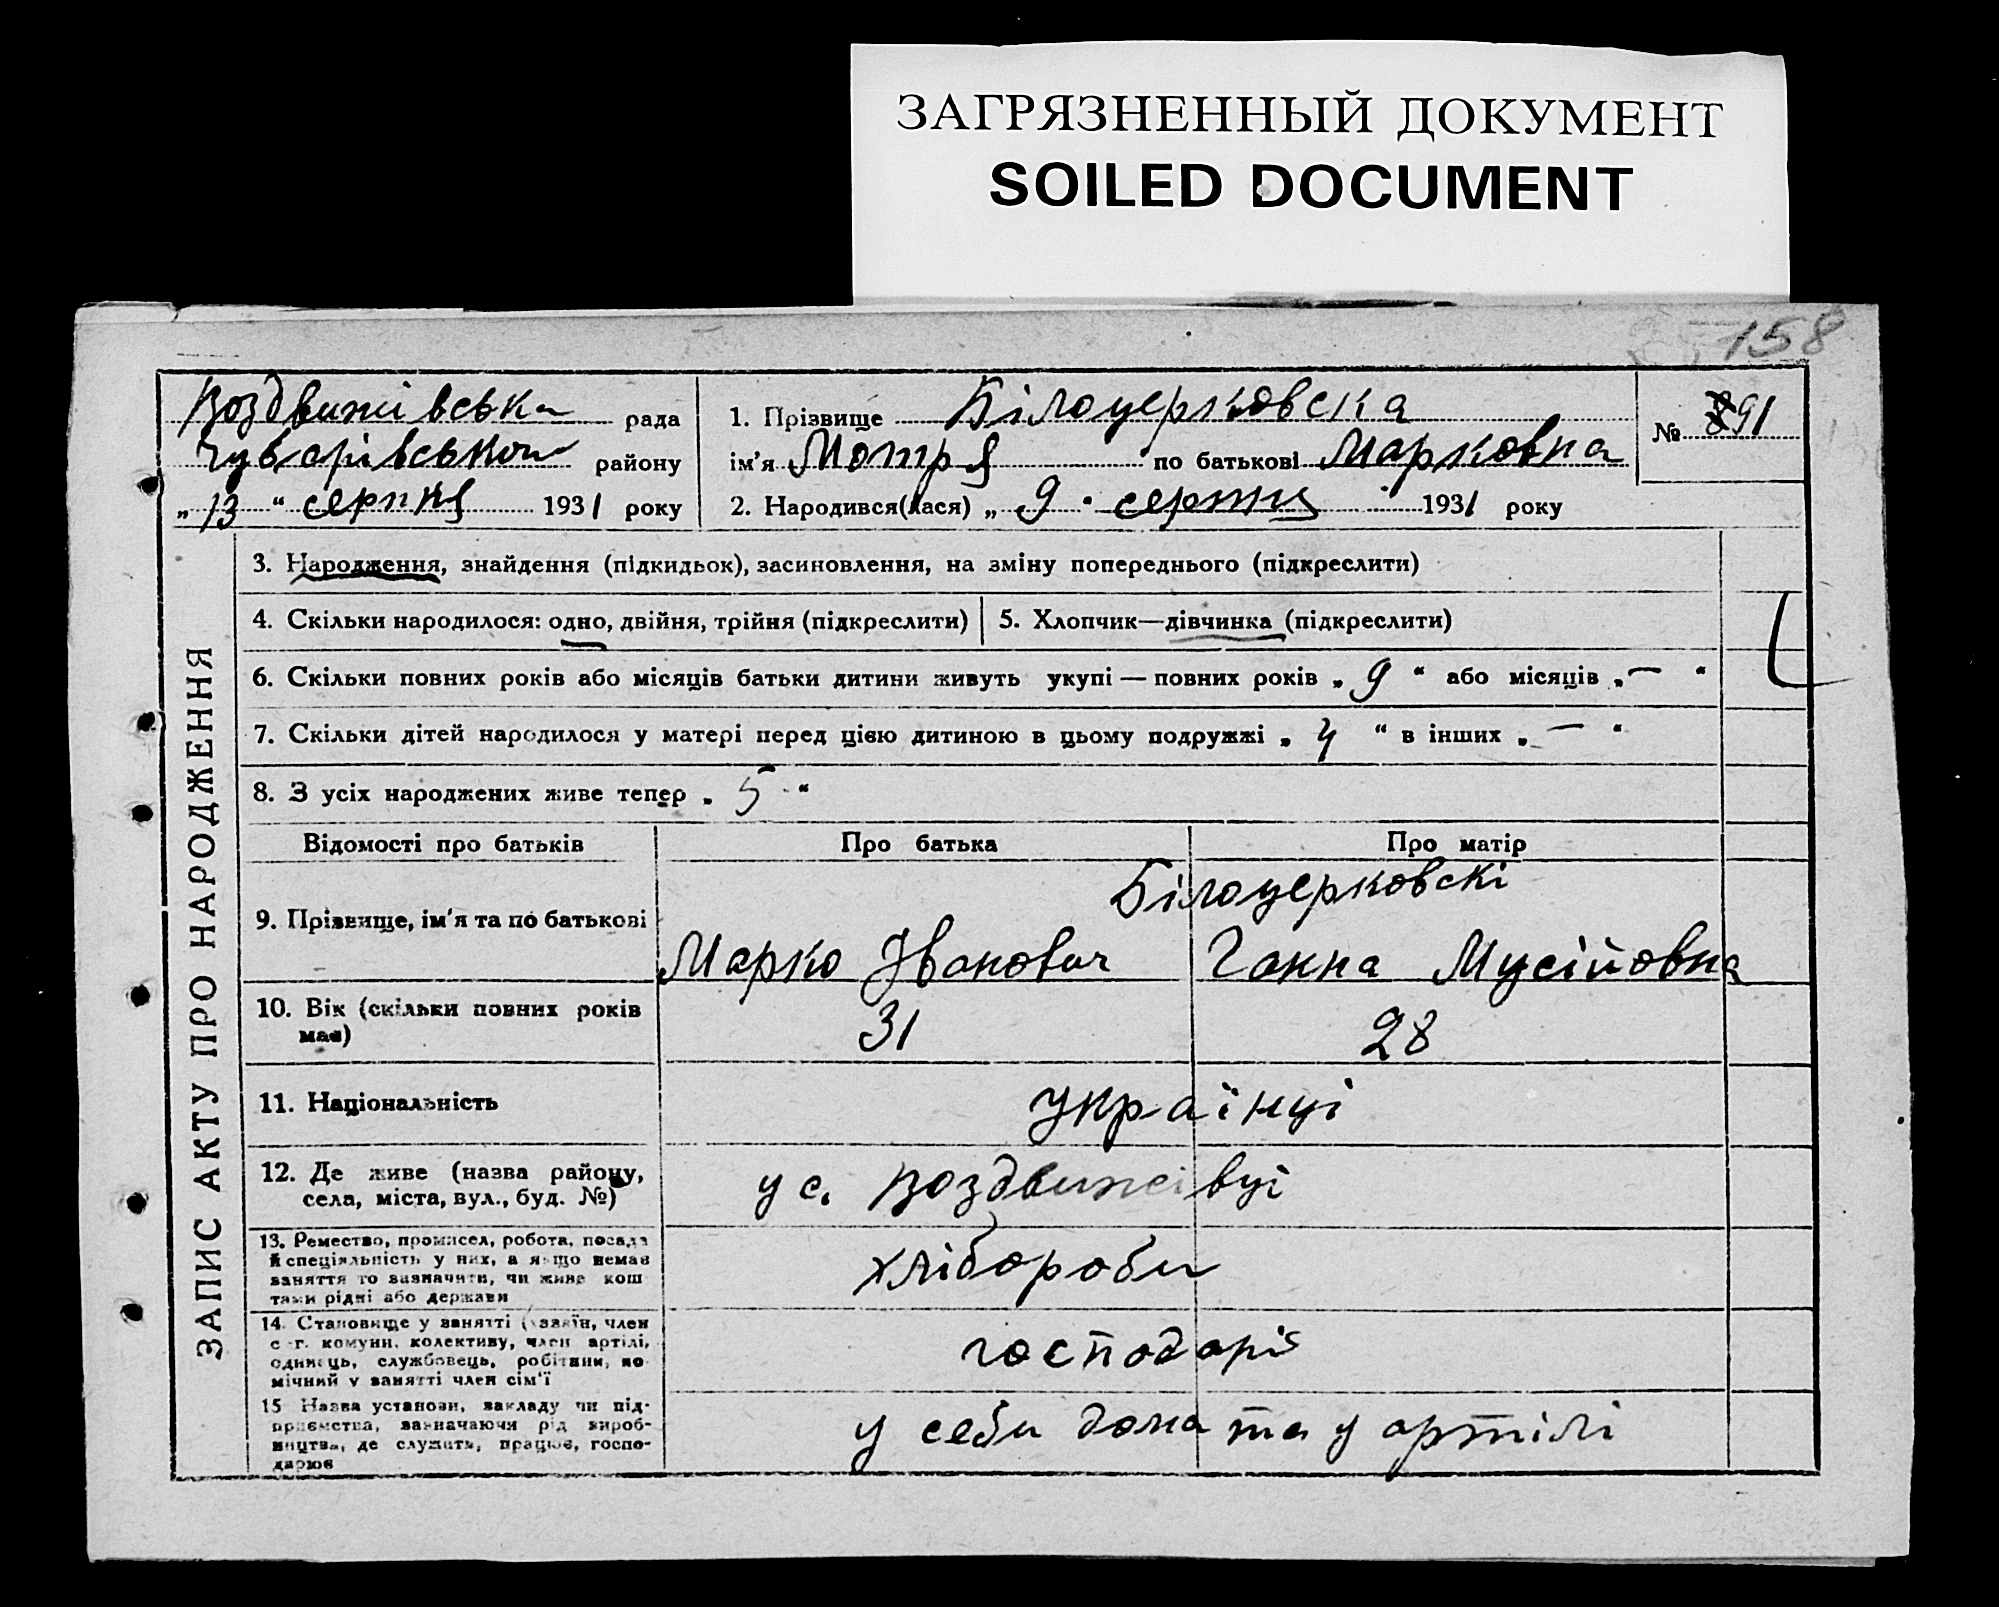 ЗАГРЯЗНЕННЫЙ ДОКУМЕНТ
SOILED DOCUMENT
158
Воздвижівська рада
Чубарівського району
„13“ серпня 1931 року
1. Прізвище Білоцерковська
ім'я Мотря по батькові Марковна
2. Народився(лася) „ 9 “ серпня 1931 року
№ 91
ЗАПИС АКТУ ПРО НАРОДЖЕННЯ
3. Народження, знайдення (підкидьок), засиновлення, на зміну попереднього (підкреслити)
4. Скільки народилося: одно, двійня, трійня (підкреслити)
5. Хлопчик—дівчинка (підкреслити)
6. Скільки повних років або місяців батьки дитини живуть укупі — повних років „ 9 “ або місяців „ — “
7. Скільки дітей народилося у матері перед цією дитиною в цьому подружжі „ 4 “ в інших „ — “
8. З усіх народжених живе тепер „ 5 “
Відомості про батьків
Про батька
Про матір
9. Прізвище, ім'я та по батькові
Білоцерковскі
Марко Іванович
Ганна Мусійовна
10. Вік (скільки повних років
має)
31
28
11. Національність
українці
12. Де живе (назва району,
села, міста, вул., буд. №)
у с. Воздвижівці
13. Ремество, промисел, робота, посада
й спеціяльність у них, а якщо немає
заняття то зазначити, чи живе кош
тами рідні або держави
хлібороби
14. Становище у занятті (хазяїн, член
с-г. комуни, колективу, член артілі,
одинець, службовець, робітник, по
мічний у занятті член сім'ї
господарі
15 Назва установи, закладу чи під-
приємства, зазначаючи рід вироб-
ництва, де служить, працює, госпо-
дарює
у себи дома та у артілі